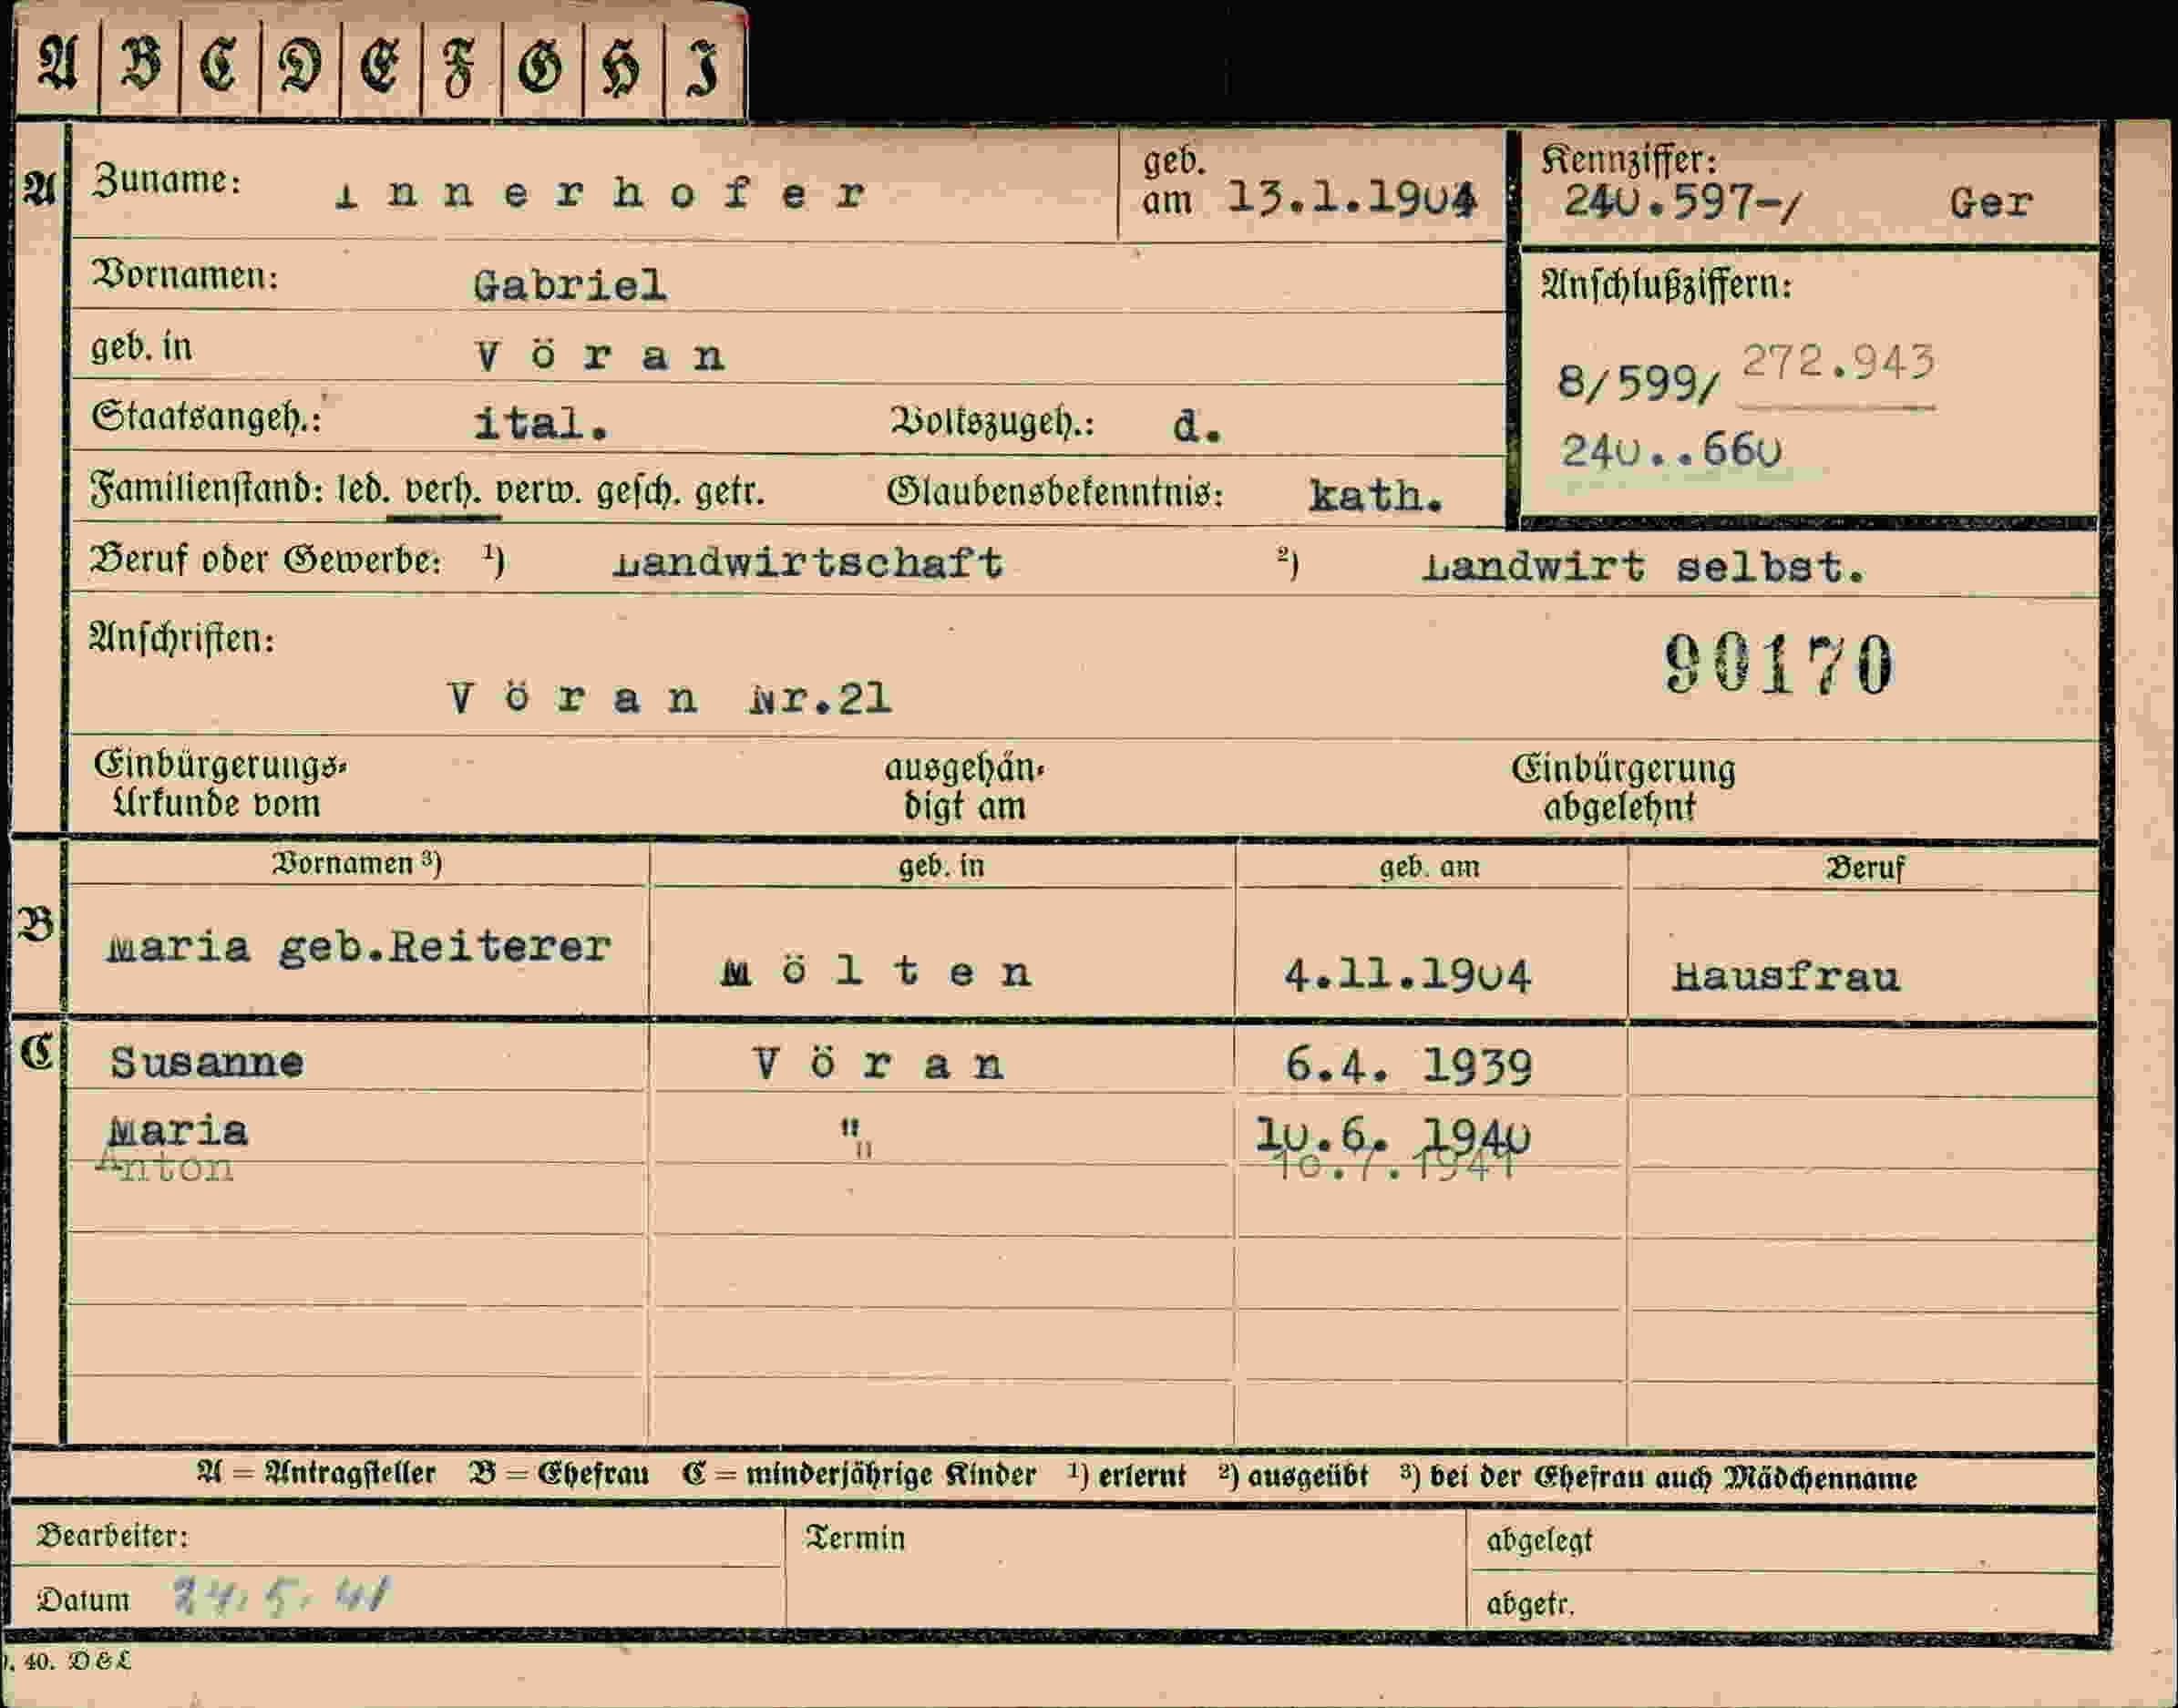 A B C D E F G H I
A Zuname: Innerhofer geb. am 13.1.1904 Kennziffer: 240.597-/ Ger
Vornamen: Gabriel Anschlußziffern:
geb. in Vöran 8/599/ 272.943
Staatsangeh.: ital. Volkszugeh.: d. 240..660
Familienstand: led. verh. verw. gesch. getr. Glaubensbekenntnis: kath.
Beruf oder Gewerbe: 1) Landwirtschaft 2) Landwirt selbst.
Anschriften: 90170
Vöran Nr.21
Einbürgerungs- ausgehän- Einbürgerung
Urkunde vom digt am abgelehnt
Vornamen 3) geb. in geb. am Beruf
B Maria geb.Reiterer Mölten 4.11.1904 Hausfrau
C Susanne Vöran 6.4. 1939
Maria " 10.6. 1940
Anton " 10.7.1941
A = Antragsteller B = Ehefrau C = minderjährige Kinder 1) erlernt 2) ausgeübt 3) bei der Ehefrau auch Mädchenname
Bearbeiter: Termin abgelegt
Datum 24.5.41 abgetr.
40. D & L